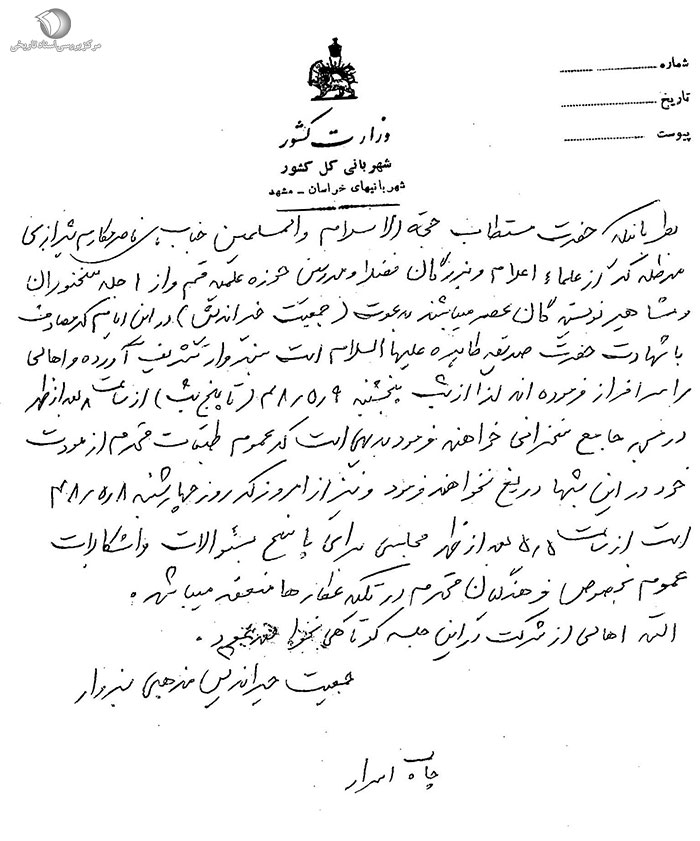 مرکز بررسی اسناد تاریخی
شماره
تاریخ
پیوست
وزارت کشور
شهربانی کل کشور
شهربانیهای خراسان - مشهد
نظر باینکه حضرت مستطاب حجة الاسلام والمسلمین جناب آقای ناصر مکارم شیرازی
مدظله که از علماء اعلام و بزرگان فضلا و مدرسین حوزه علمیه قم و از اجله سخنوران
و مشاهیر نویسندگان عصر میباشند بدعوت (جمعیت خیراندیش) در این ایام که مصادف
با شهادت حضرت صدیقه طاهره علیها السلام است بسبزوار تشریف آورده و اهالی
را سرافراز فرموده اند لذا از شب پنجشنبه ۴۸/۵/۹ (تا پنج شب) از ساعت ۸ بعد از ظهر
در مسجد جامع سخنرانی خواهند فرمود بدیهی است که عموم طبقات محترم از
خود در این شبها دریغ نخواهند فرمود و نیز از امروز که روز چهارشنبه ۴۸/۵/۸
است از ساعت ۵/۵ بعد از ظهر مجلسی برای پاسخ بسئوالات و اشکالات
عموم بخصوص فرهنگیان محترم در تکیه عطارها منعقد میباشد.
البته اهالی از شرکت در این جلسه کوتاهی نخواهند نمود.
جمعیت خیراندیش مذهبی سبزوار
چاپ اسرار